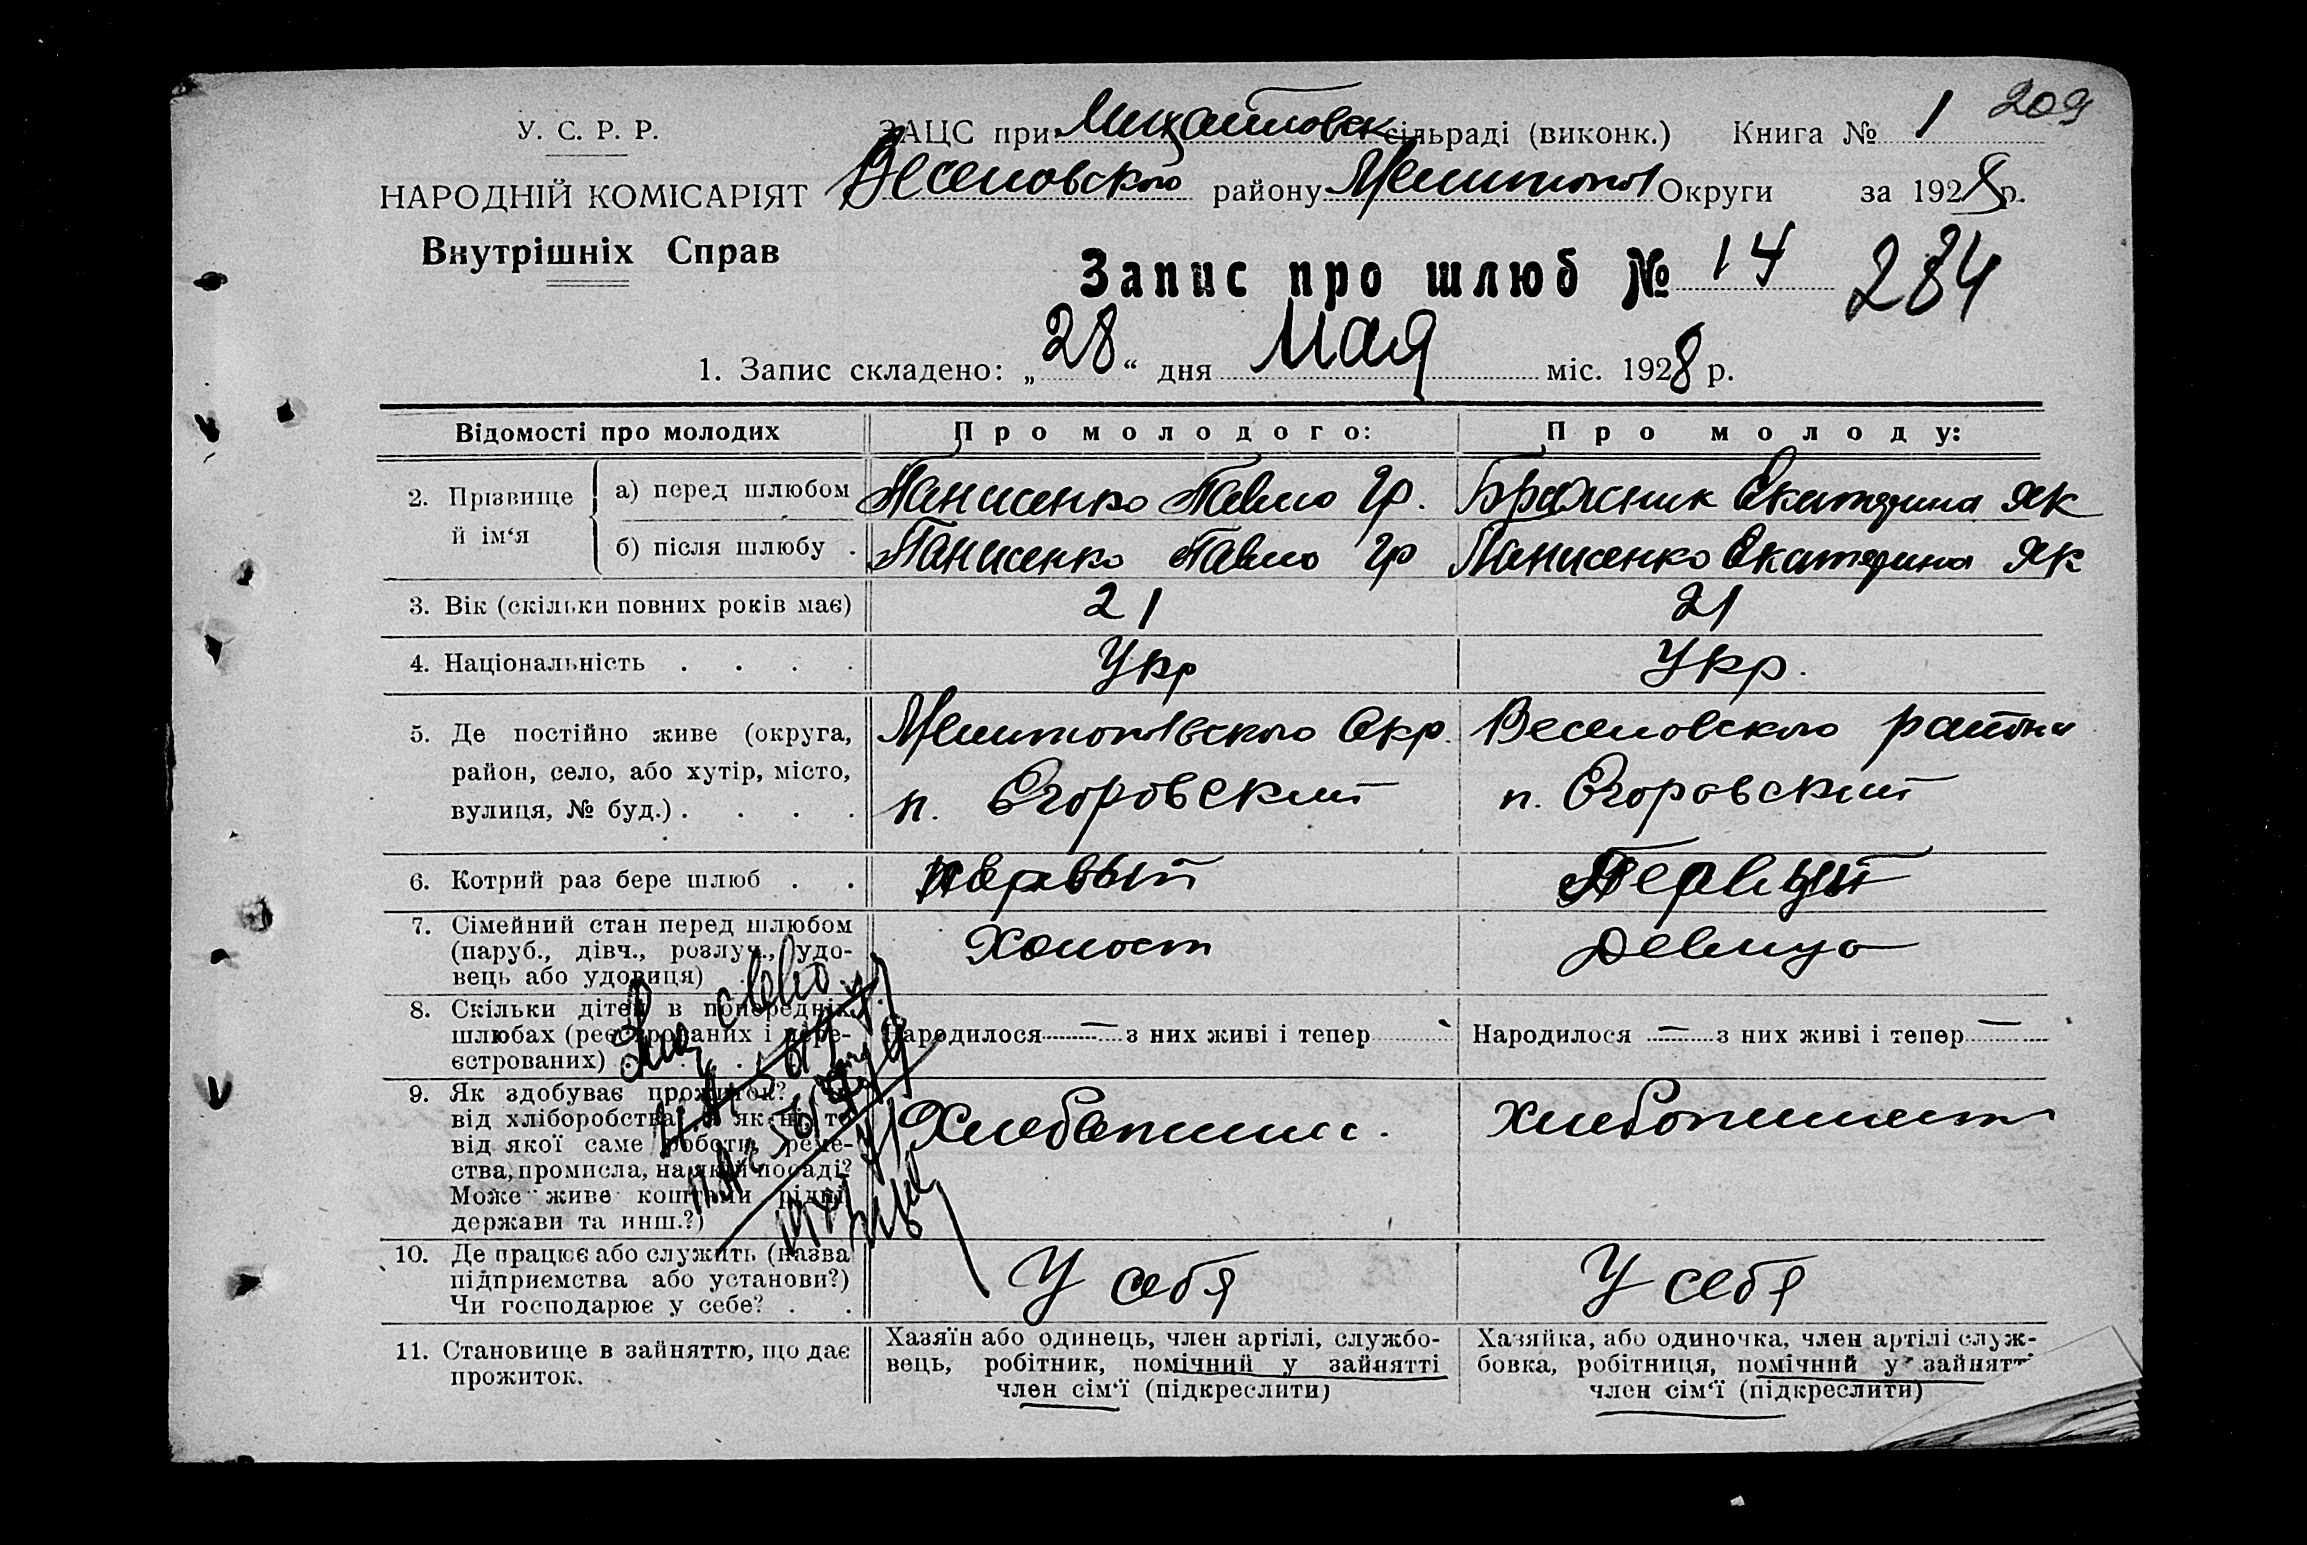 209
У. С. Р. Р.
ЗАЦС при Михайловск сільраді (виконк.) Книга № 1
НАРОДНІЙ КОМІСАРІЯТ
Веселовского району Мелитопол Округи за 1928 р.
Внутрішніх Справ
Запис про шлюб № 14 284
1. Запис складено: „28“ дня Мая міс. 1928 р.
Відомості про молодих Про молодого: Про молоду:
2. Прізвище й ім‘я
а) перед шлюбом Панисенко Павло Гр. Бражник Екатерина Як
б) після шлюбу . Панисенко Павло Гр Панисенко Екатерина Як
3. Вік (скільки повних років має) 21 21
4. Національність . . . . Укр Укр.
5. Де постійно живе (округа, Мелитопольского Окр. Веселовского района
район, село, або хутір, місто, п. Егоровский п. Егоровский
вулиця, № буд.) . . . .
6. Котрий раз бере шлюб . . первый Первый
7. Сімейний стан перед шлюбом
(паруб., дівч., розлуч., удо- Холост Девица
вець або удовиця)
8. Скільки дітей в попередніх
шлюбах (реєстрованих і нере- Народилося — з них живі і тепер Народилося — з них живі і тепер —
єстрованих) . . .
9. Як здобуває прожиток? Чи
від хліборобства, а як ні, то Хлебопашес. Хлебопашест
від якої саме роботи, реме-
ства, промисла, на якій посаді?
Може живе коштами рідні,
держави та инш.?)
10. Де працює або служить (назва
підприємства або установи?) У себя У себя
Чи господарює у себе? . .
11. Становище в зайняттю, що дає
прожиток.
Хазяїн або одинець, член артілі, службо-
вець, робітник, помічний у зайнятті
член сім‘ї (підкреслити)
Хазяйка, або одиночка, член артілі служ-
бовка, робітниця, помічний у зайнятті
член сім‘ї (підкреслити)